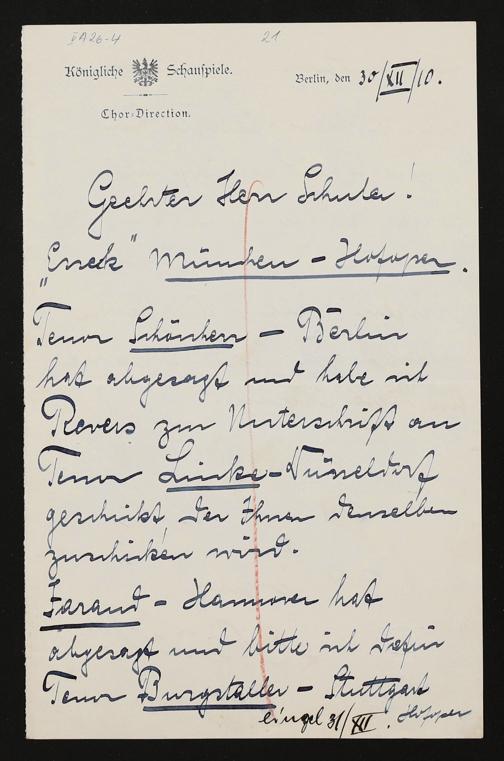 II A 26-4
21
Königliche Schauspiele.
Chor-Direction.
Berlin, den 30/XII/10.
Geehrter Herr Schuler!
„Enek“ München - Hofoper.
Tenor Schönherr - Berlin
hat abgesagt und habe ich
Revers zur Unterschrift an
Tenor Linke-Düsseldorf
geschickt, der Ihnen denselben
zuschicken wird.
Farand - Hannover hat
abgesagt und bitte ich dafür
Tenor Burgstaller - Stuttgart
Hofoper
eingel 31/XII.